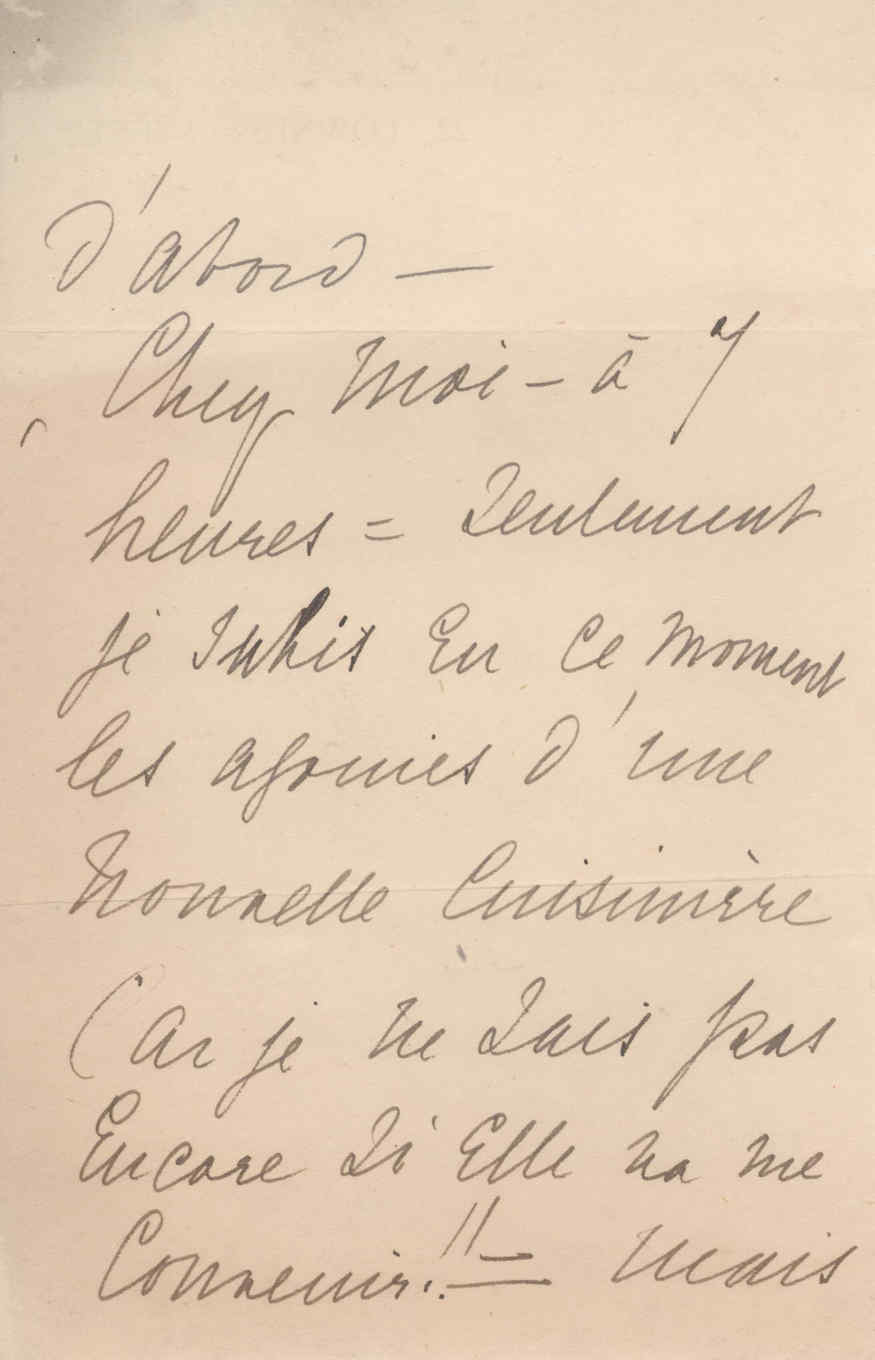 d'abord —
Chez Moi – à 7
heures = Seulement
je subis En Ce Moment
les agonies d'une
Nouvelle Cuisinière
Car je ne Sais pas
Encore Si Elle va me
Convenir!! = Mais